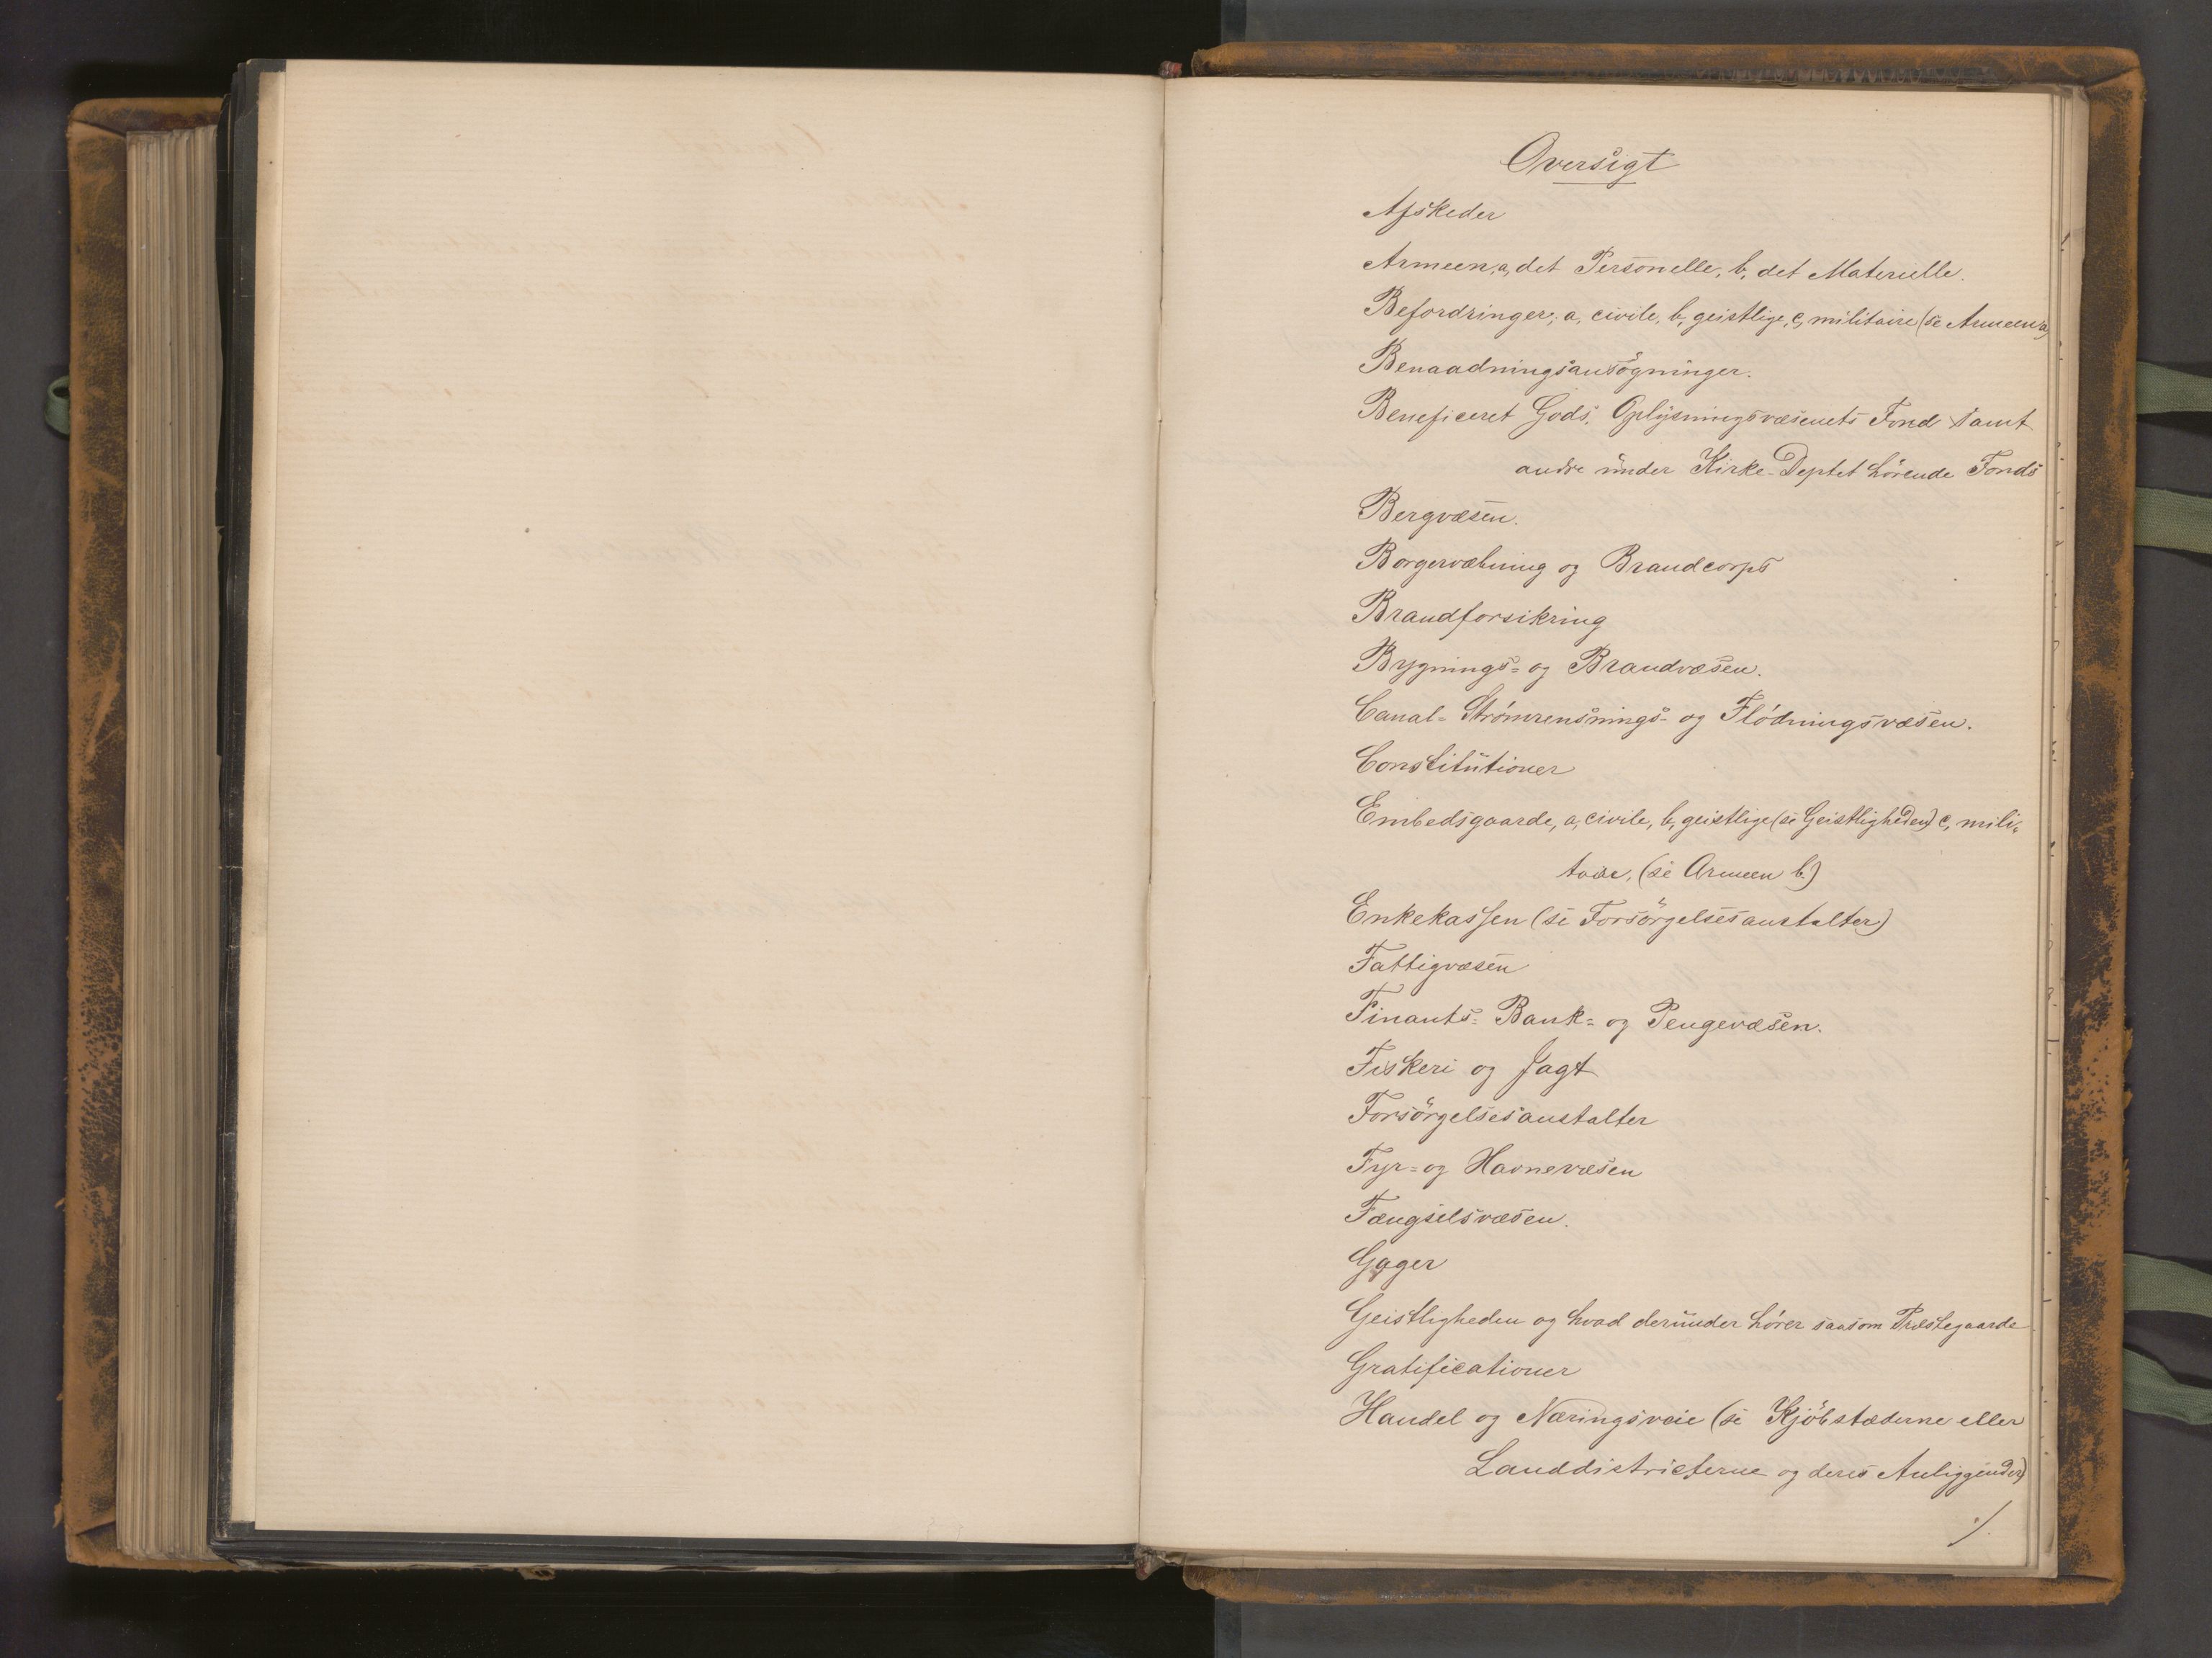 Oversigt
Afskeder
Armeen, a, det Personelle, b, det Materielle.
Befordringer, a, civile, b, geistlige, c, militaire (se Armeen a)
Benaadningsansögninger.
Beneficeret Gods, Oplysningsvæsenets Fond samt
andre under Kirke-Deptet hörende Fonds
Bergvæsen.
Borgervæbning og Brandcorps
Brandforsikring
Bygnings- og Brandvæsen.
Canal- Strømrensnings- og Flödningsvæsen.
Constitutioner
Embedsgaarde, a, civile, b, geistlige (se Geistligheden) c, mili-
taire, (se Armeen b.)
Enkekassen (se Forsörgelsesanstalter)
Fattigvæsen
Finants- Bank- og Pengevæsen.
Fiskeri og Jagt
Forsörgelsesanstalter
Fyr- og Havnevæsen
Fængselsvæsen.
Gager
Geistligheden og hvad derunder hörer saasom Præstegaarde
Gratificationer
Handel og Næringsveie (se Kjöbstæderne eller
Landdistricterne og deres Anliggender)
./.